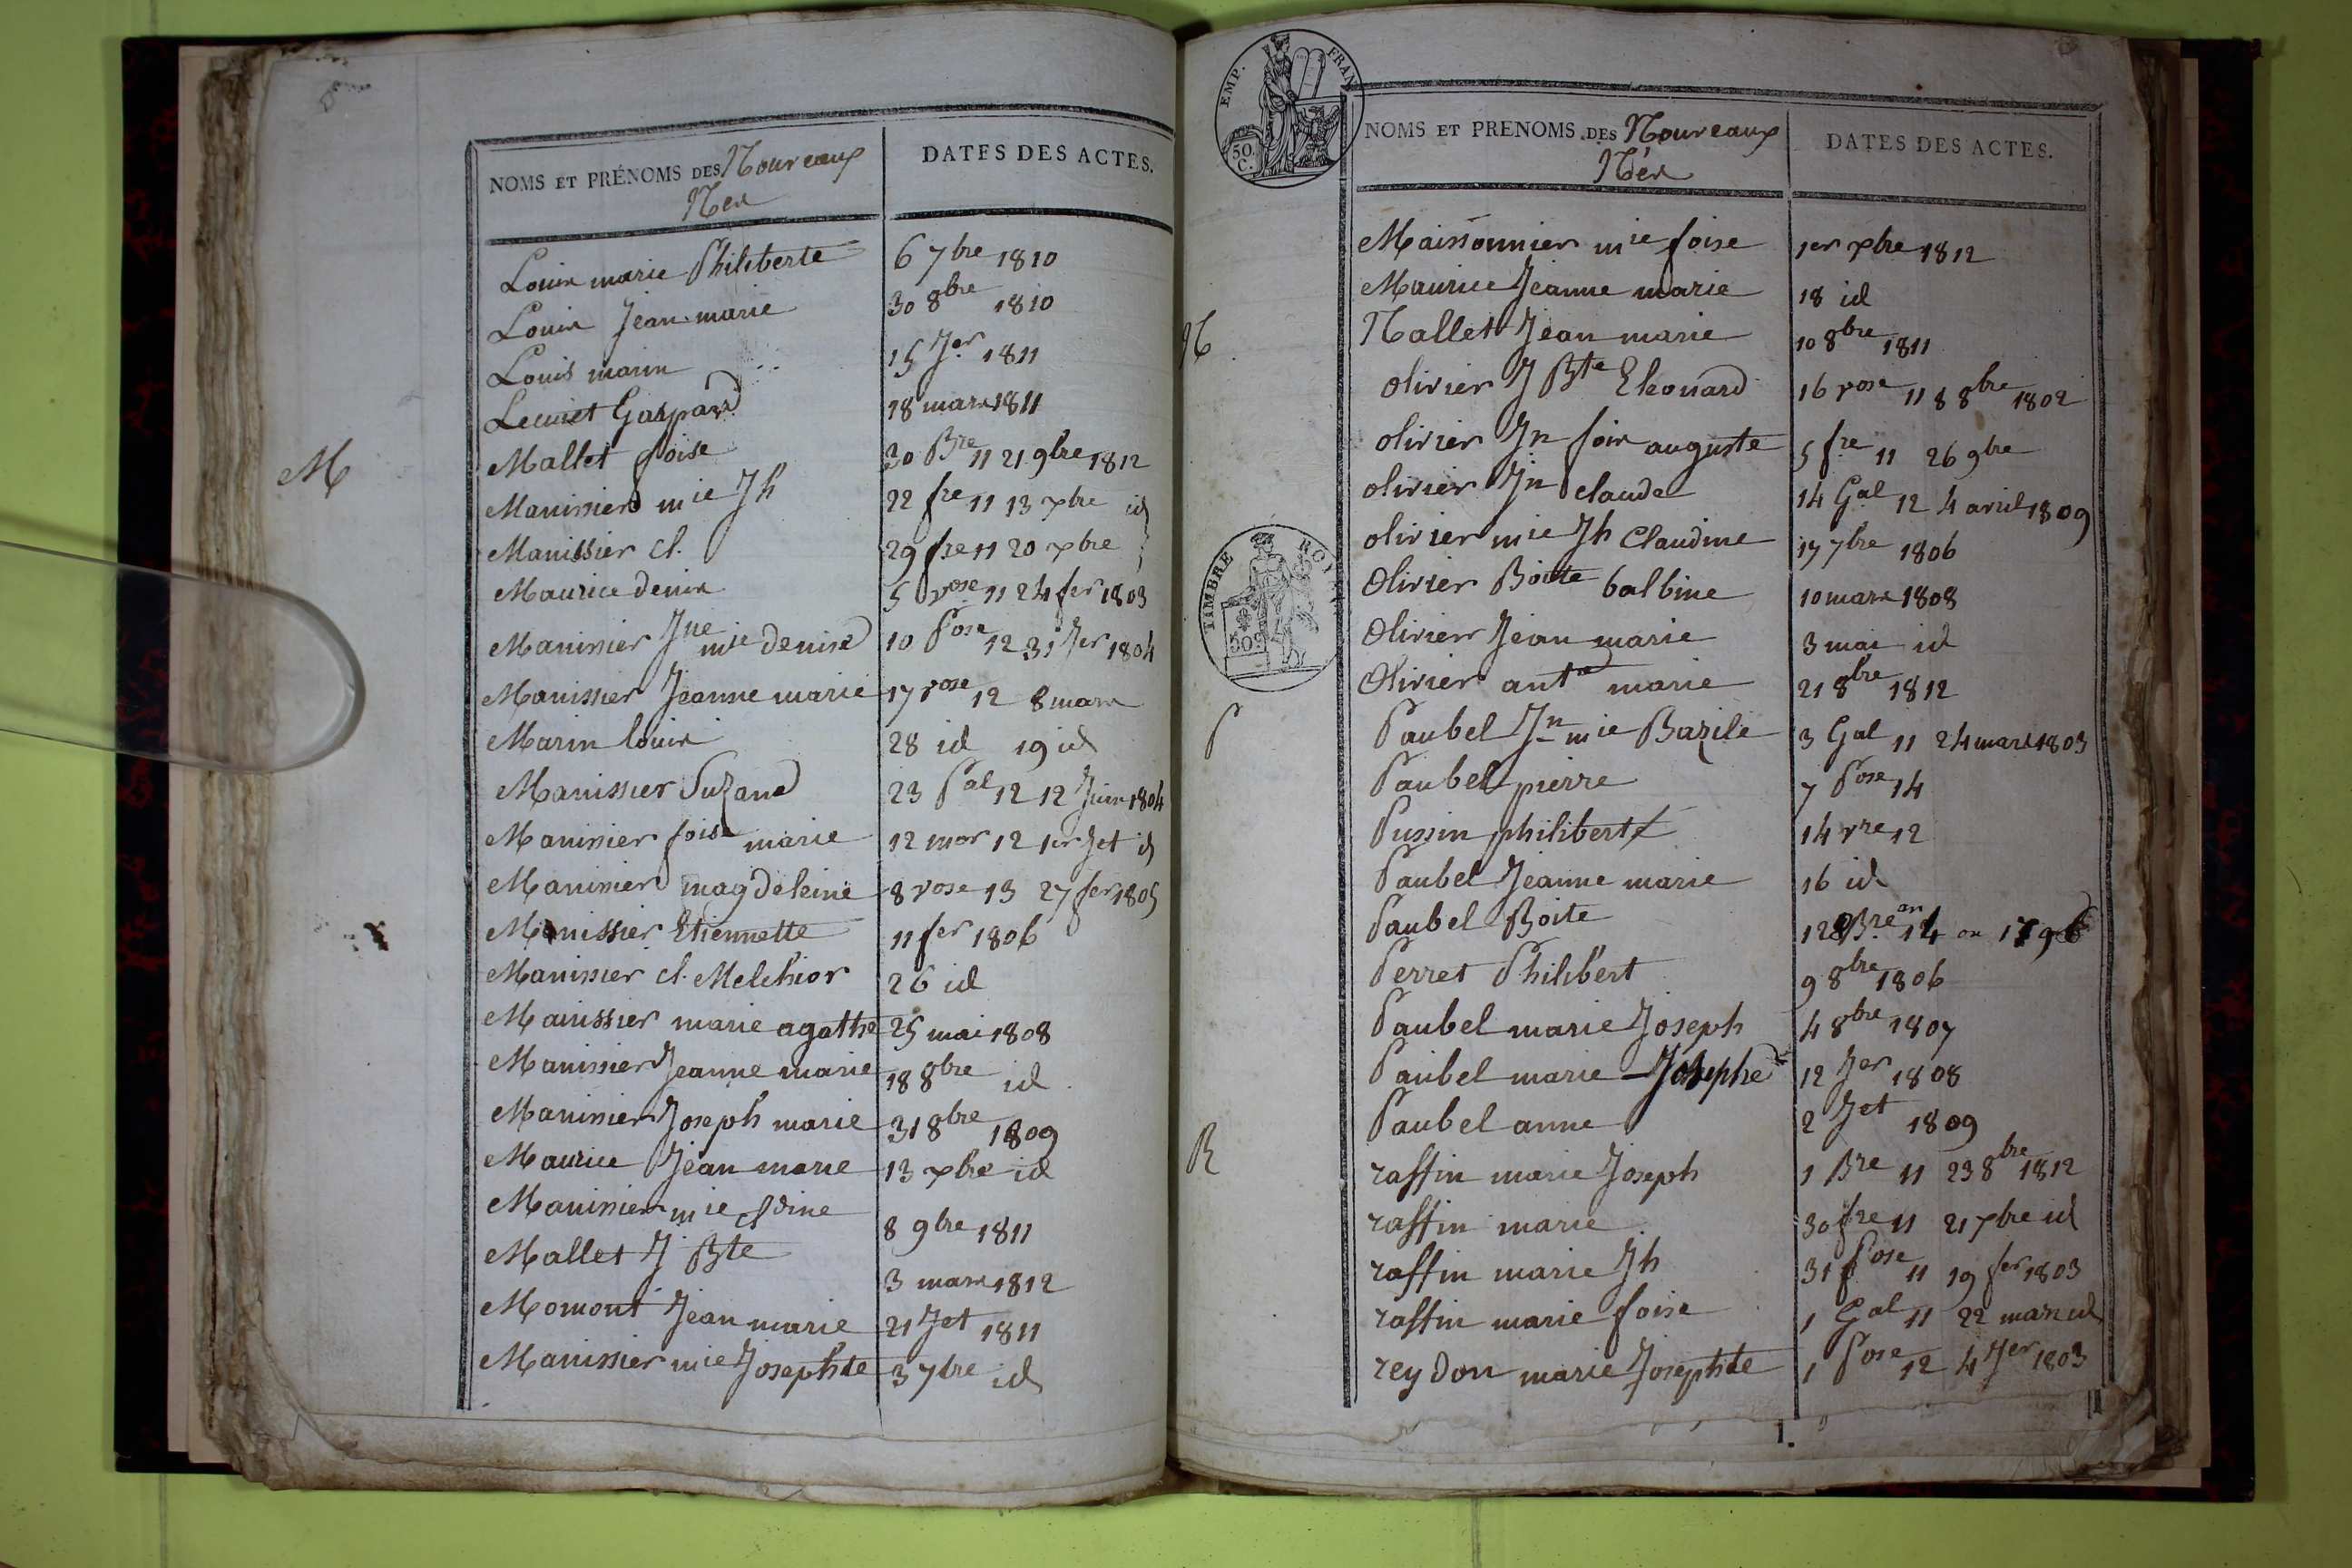 NOMS ET PRÉNOMS DES Nouveaux
Nés
DATES DES ACTES.
Louis marie Philiberte 6 7bre 1810
Louis Jean marie 30 8bre 1810
Louis marin 15 Jer 1811
Lecuiet Gaspard 18 mars 1811
M
Mallet foise 30 Bre 11 21 9bre 1812
Manissier mie Jh 22 fre 11 13 xbre id
Manissier cl. 29 fre 11 20 xbre
Maurice denis 5 vose 11 24 fer 1803
Manissier Jne mie denise 10 Pose 12 31 Jer 1804
Manissier Jeanne marie 17 vose 12 8 mars
Marin louis 28 id 19 id
Manissier Suzane 23 Pal 12 12 Juin 1804
Manissier foise marie 12 mor 12 1er Jet id
Manissier magdeleine 8 vose 13 27 fer 1805
Manissier Etiennette 11 fer 1806
Manissier cl. Melchior 26 id
Manissier marie agathe 25 mai 1808
Manissier Jeanne marie 18 8bre id
Manissier Joseph marie 31 8bre 1809
Maurice Jean marie 13 xbre id
Manissier mie cldine 8 9bre 1811
Mallet J Bte 3 mars 1812
Momont Jean marie 21 Jet 1811
Manissier mie Josephte 3 7bre id
EMP. FRAN
50 C.
NOMS ET PRENOMS DES Nouveaux
Nés
DATES DES ACTES.
Maissonnier mie foise 1er xbre 1812
Maurice Jeanne marie 18 id
N
Nallet Jean marie 10 8bre 1811
olivier J Bte Eleonard 16 vose 11 8 8bre 1802
olivier Jn fois auguste 5 fre 11 26 9bre
olivier Jn claude 14 Gal 12 4 avril 1809
olivier mie Jh Claudine 17 7bre 1806
TIMBRE ROYAL
50
Olivier Boite balbine 10 mars 1808
Olivier Jean marie 3 mai id
Olivier ante marie 21 8bre 1812
P
Paubel Jn mie Bazile 3 Gal 11 24 mars 1803
Paubel pierre 7 Pose 14
Pussin philibert 14 vre 12
Paubel Jeanne marie 16 id
Paubel Boite 12 Bre an 14 ou
Perret Philibert 9 8bre 1806
Paubel marie Joseph 4 8bre 1807
Paubel marie Josephe 12 Jer 1808
Paubel anne 2 Jet 1809
R
raffin marie Joseph 1 Bre 11 23 8bre 1812
raffin marie 30 fre 11 21 xbre id
raffin marie Jh 31 Pose 11 19 fer 1803
raffin marie foise 1 Gal 11 22 mars id
reydon marie Josephte 1 Pose 12 4 Jer 1803
1.